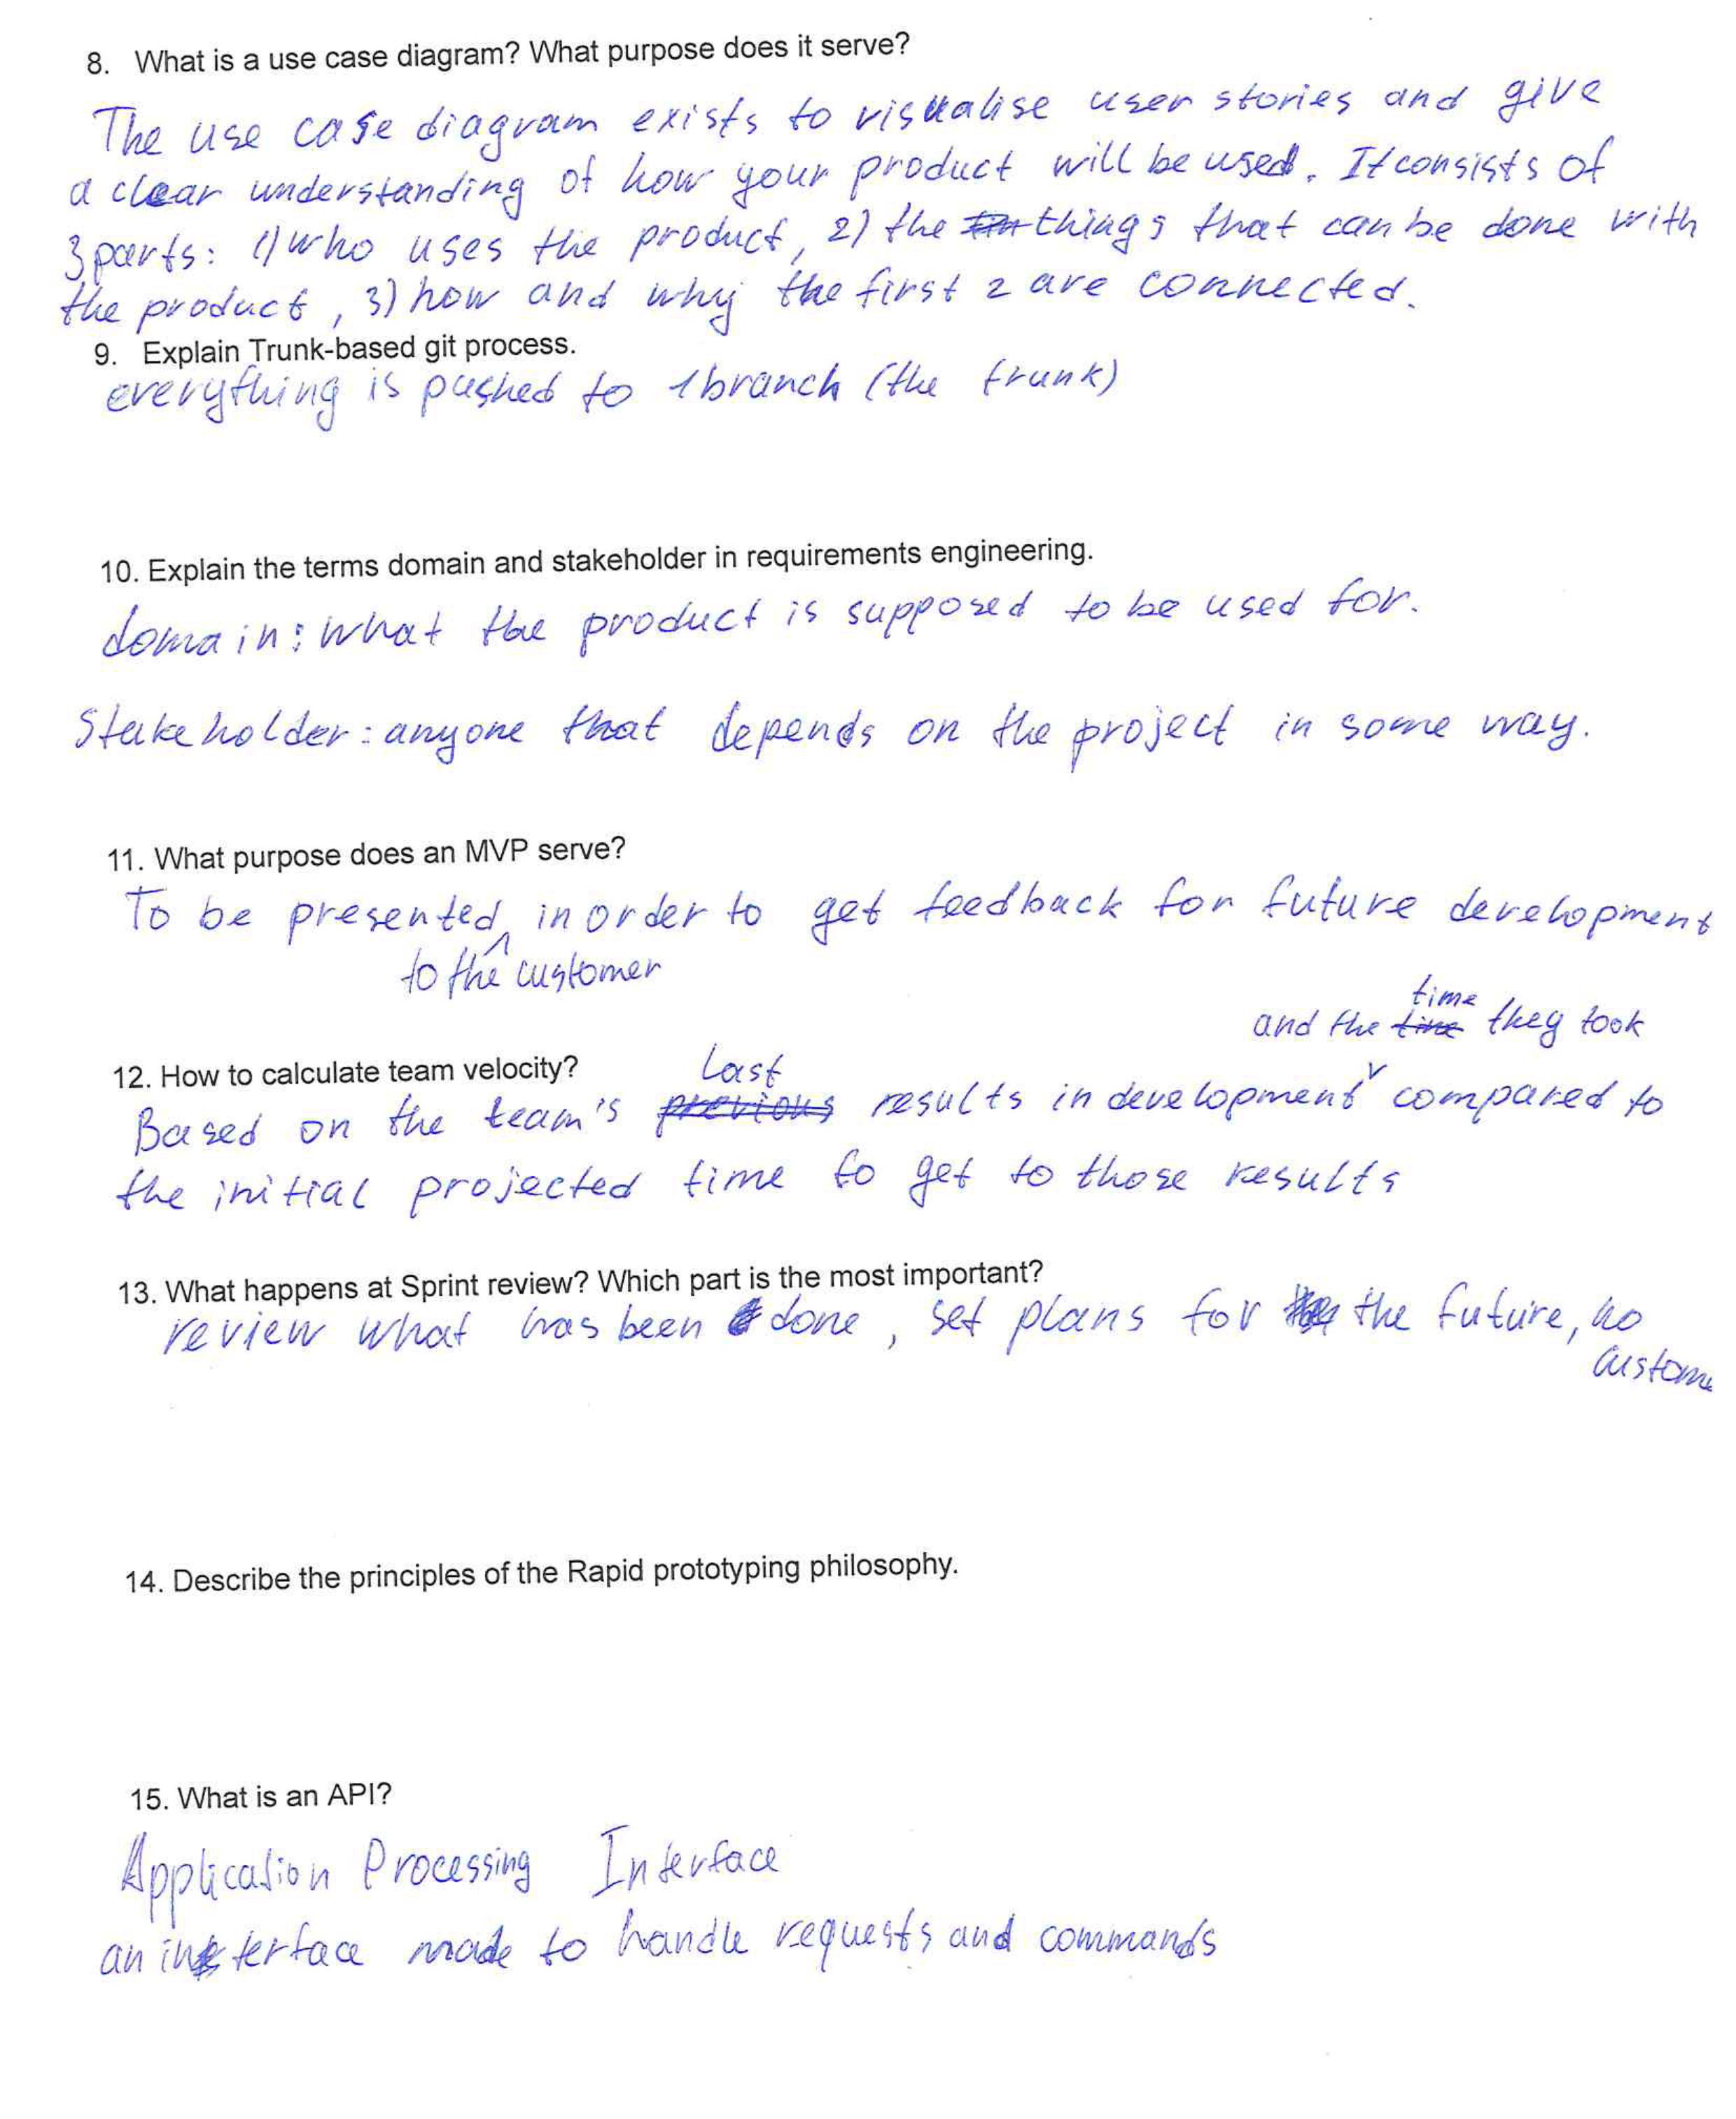 8. What is a use case diagram? What purpose does it serve?
The use case diagram exists to visualise user stories and give
a clear understanding of how your product will be used. It consists of
3 parts: 1) who uses the product, 2) the things that can be done with
the product, 3) how and why the first 2 are connected.
9. Explain Trunk-based git process.
everything is pushed to 1 branch (the trunk)
10. Explain the terms domain and stakeholder in requirements engineering.
domain: what the product is supposed to be used for.
Stakeholder: anyone that depends on the project in some way.
11. What purpose does an MVP serve?
To be presented in order to get feedback for future development
to the customer
time
and the time they took
12. How to calculate team velocity?
Last
Based on the team's previous results in development compared to
the initial projected time to get to those results
13. What happens at Sprint review? Which part is the most important?
review what has been done, set plans for the future, no
custome
14. Describe the principles of the Rapid prototyping philosophy.
15. What is an API?
Application Processing Interface
an interface made to handle requests and commands